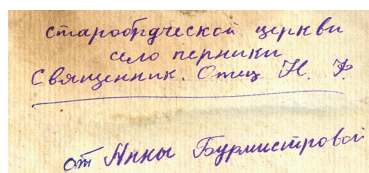 старобрдческой церкви
село перники
Священник. Отец Н. Ф.
от Анны Бурмистровой